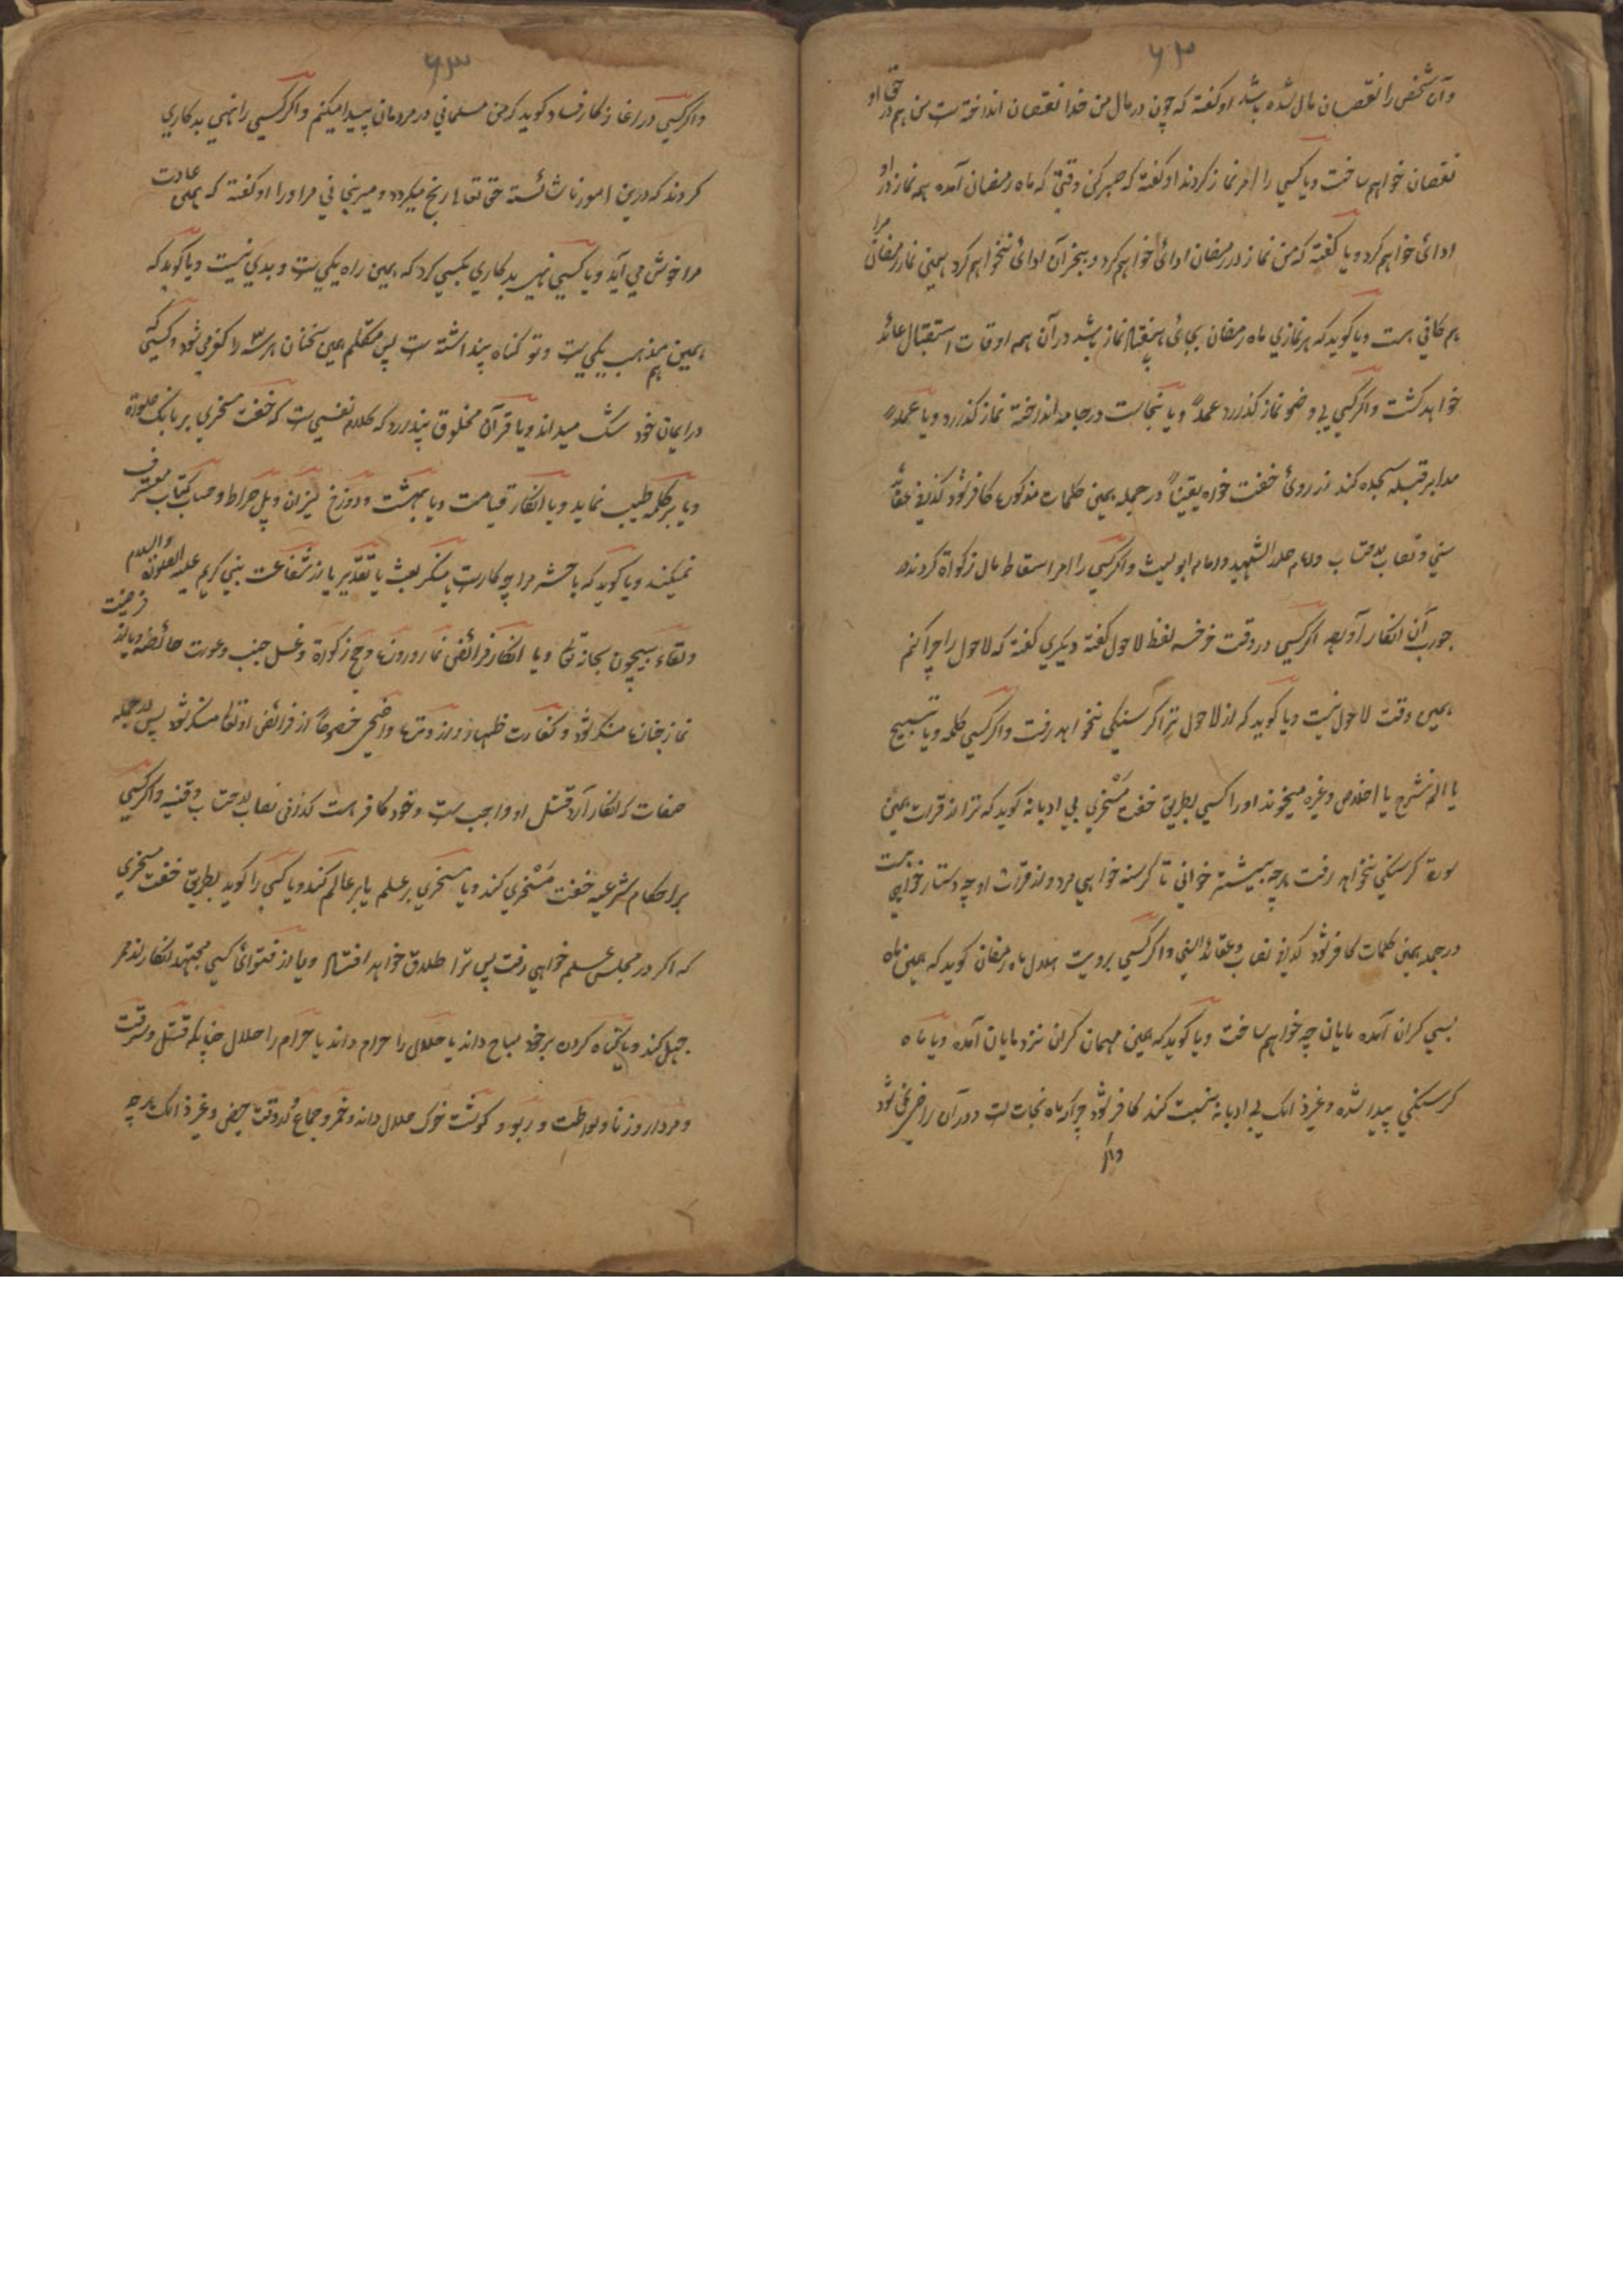 ۶۲
وآن شخص را نقصان مال شده باشد او گفته که چون در مال من خدا نقصان انداخته ست من هم در حق او
نقصان خواهم ساخت ویا کسی را امر نماز کردند او گفته که صبر کن وقتی که ماه رمضان آمده هم نماز در او
ادائ خواهم کرد ویا گفته که من نماز در رمضان ادائ خواهم کرد وبجز آن ادائ نخواهم کرد همینی نماز رمضان مرا
هم کافی هست ویا گوید که هر نمازی ماه رمضان بجائ هفتاد نماز باشد در آن همه اوقات استقبال عائد
خواهد گشت واگر کسی بی وضو نماز گذارد عمداً ویا نجاست در جامه انداخته نماز گذارد ویا عمداً
سجده کند از روئ خفت خواه یقیناً در جمله همینی کلمات مذکوره کافر شود
سنی و نصاب احتساب وامام صدر الشهید وامام ابو لیث واگر کسی را امر اسقاط مال زکواة کردند در
جواب آن انکار آورد اگر کسی در وقت لفظ لاحول گفته دیگری گفته که لاحول را چرا کنم
همین وقت لاحول نیست ویا گوید که از لاحول ترا گرسنگی نخواهد رفت واگر کسی کلمه ویا تسبیح
یا الم نشرح یا اخلاص وغیره میخواند او را کسی بطریق خفت مسخری بی ادبانه گوید که ترا از قرات همین
سورة گرسنگی نخواهد رفت هر چه بیشتر خوانی تا گرسنه خواهی مرد واز قرات او چه دستار خواهی بست
در جمله همینی کلمات کافر شود نصاب وعقائد واگر کسی برویت هلال ماه رمضان گوید که همین ماه
بسی گران آمده مایان چه خواهم ساخت ویا گوید که همین مهمان گران نزد مایان آمده ویا ماه
گرسنگی پیدا شده وغیر ذالک بی ادبانه نسبت کند کافر شود چرا که ماه نجات است و در آن راضی نمی شود
واگر
۶۳
واگر کسی در آغاز کار فساد گوید که من مسلمانی در مردمان پیدا میکنم واگر کسی را نهی بدکاری
کردند که درین امور ناشائسته حق تعالی رنج میگردد و میرنجانی مر او را او گفته که همین عادت
مرا خوش می آید ویا کسی نهی بدکاری بکسی کرد که همین راه نیکی ست وبدی نیست ویا گوید که
همین مذهب نیکی ست وتو گناه پنداشته ست پس متکلم همین سخنان هر سه را کفر می شود وکسی که
در ایمان خود شک میداند ویا قرآن مخلوق پندارد که کلام نفسی ست که خفت مسخری بر بانک صلوة
ویا بر کلمه طیب نماید ویا انکار قیامت ویا بهشت ودوزخ میزان وپل صراط وحساب کتاب معترف
نمیکند ویا گوید که با حشر مرا چه کارست یا منکر بعث یا تقدیر یا از شفاعت نبی کریم علیه الصلوة والسلام
ولقاء بیچون سبحانه تعالی ویا انکار فرائض نماز وروزه وحج زکوة وغسل جنب وعورت حائضه ویا از فرضیت
نماز جنازه منکر شود وکفارت ظهار وروزه خصوصاً از فرائض او تعالی منکر شود پس از جمله
صفات انکار آرد قتل او واجب ست وخود کافر هست کذا فی نصاب احتساب وقنیه واگر کسی
بر احکام شرعیه خفت مسخری کند ویا مسخری بر علم یا بر عالم کند ویا کسی را گوید بطریق خفت مسخری
که اگر در مجلس علم خواهی رفت پس ترا طلاق خواهد افتاد ویا از فتوائ کسی مجتهد انکار
جهل کند ویا گناه کردن بر خود مباح داند یا حلال را حرام داند یا حرام را حلال چنانکه قتل وسرقت
ومردار وزنا ولواطت وربوٰ وگوشت خوک حلال داند وخمر وجماع در وقت حیض وغیر ذالک هر چه